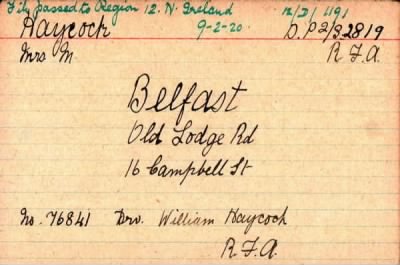 File passed to Region 12. N. Ireland 12/D/1191
Haycock 9-2-20. D.P2/H.2819
Mrs M R.F.A.
Belfast
Old Lodge Rd
16 Campbell St
No. 76841 Drv. William Haycock
R.F.A.